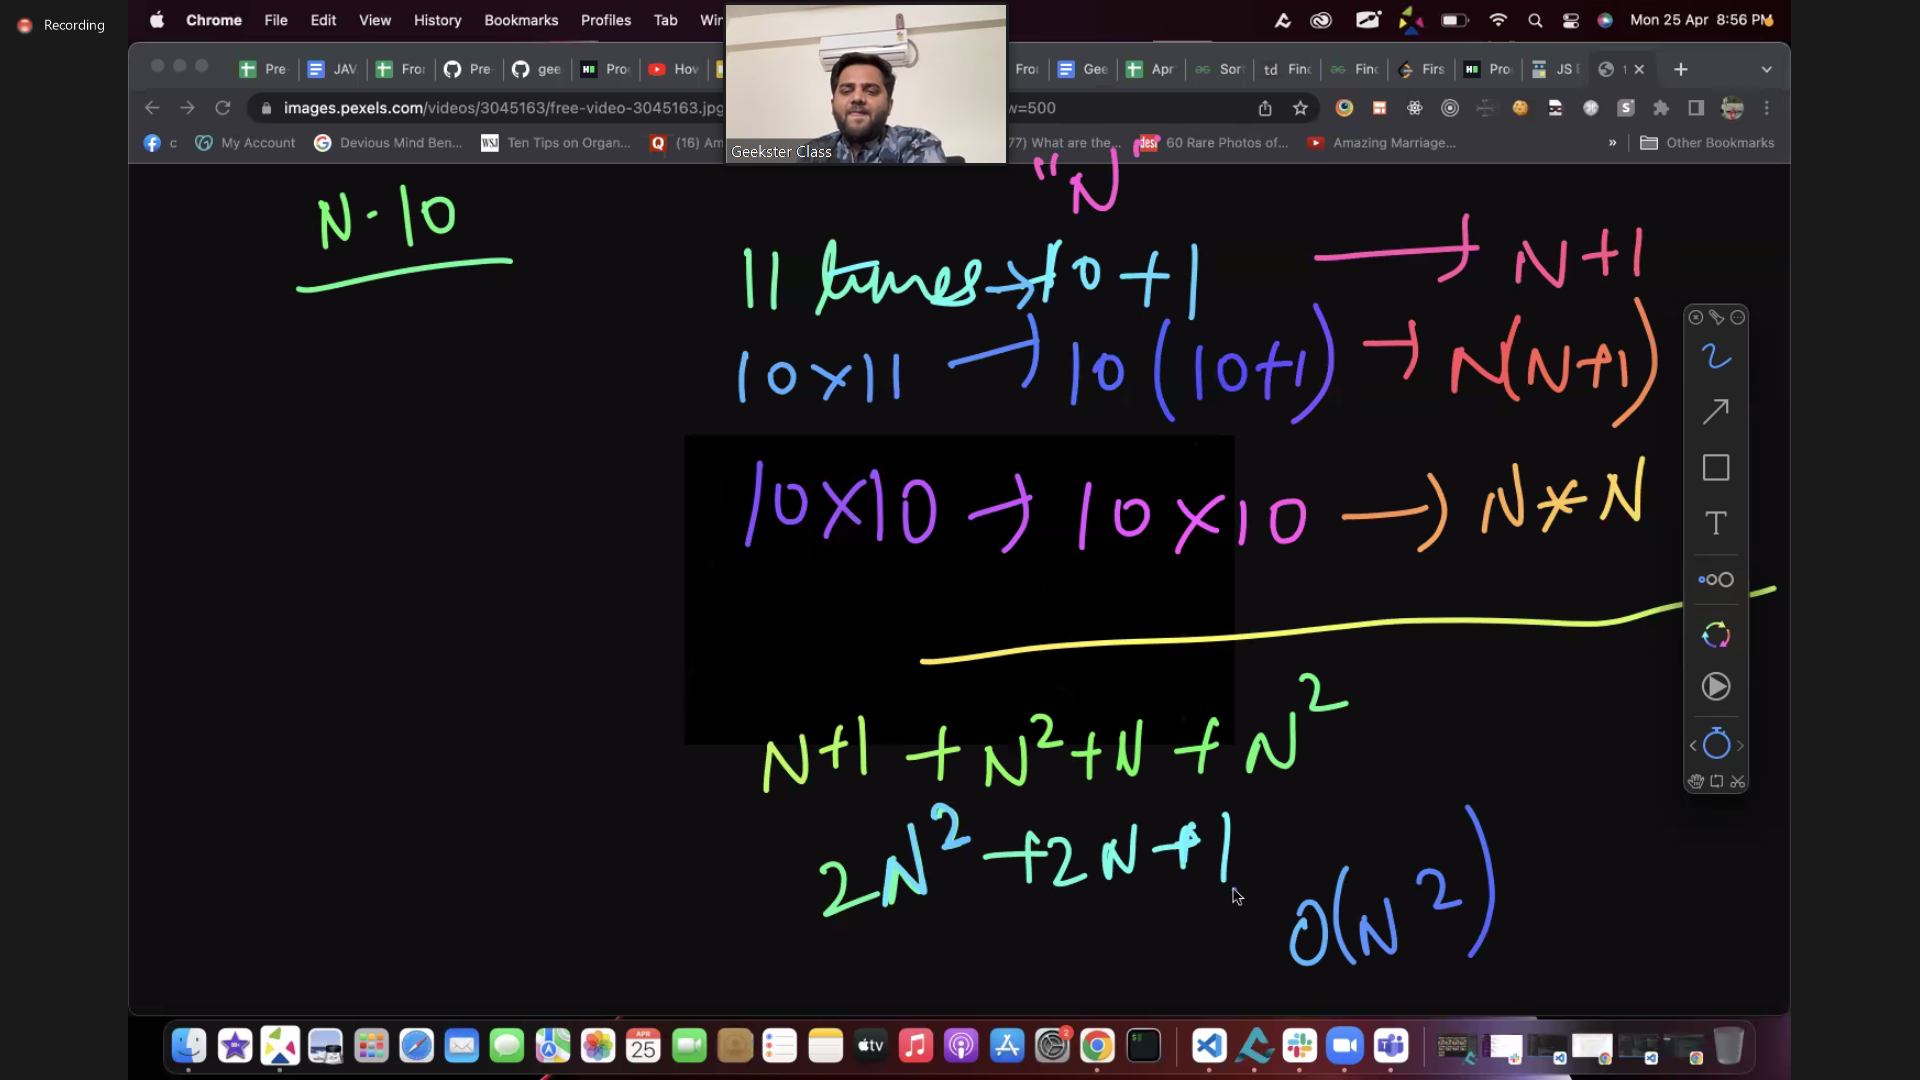 Recording
Chrome File Edit View History Bookmarks Profiles Tab Mon 25 Apr 8:56 PM
Pre- JAV. Fro Pre- gee Pro How Fro Gee Apr Sor Finc Finc Firs Pro JS
images.pexels.com/videos/3045163/free-video-3045163.jpg w=500
c My Account Devious Mind Ben... WSJ Ten Tips on Organ... (16) Am 77) What are the... 60 Rare Photos of... Amazing Marriage... » Other Bookmarks
Geekster Class
"N"
N - 10
11 times → 10 + 1 → N+1
10 x 11 → 10 (10+1) → N(N+1)
10 x 10 → 10 x 10 → N * N
N+1 + N² + N + N²
2N² + 2N + 1
O(N²)
APR
25
tv
2